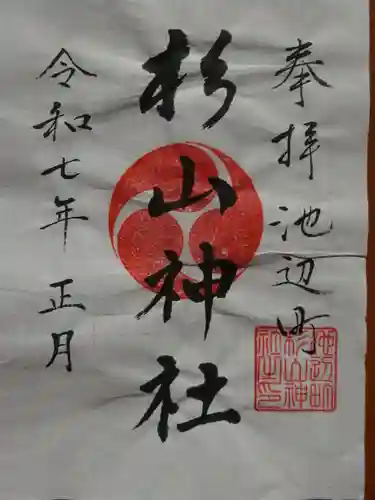 奉拝 池辺町
杉山神社
令和七年 正月
池辺町
杉山神
社之印